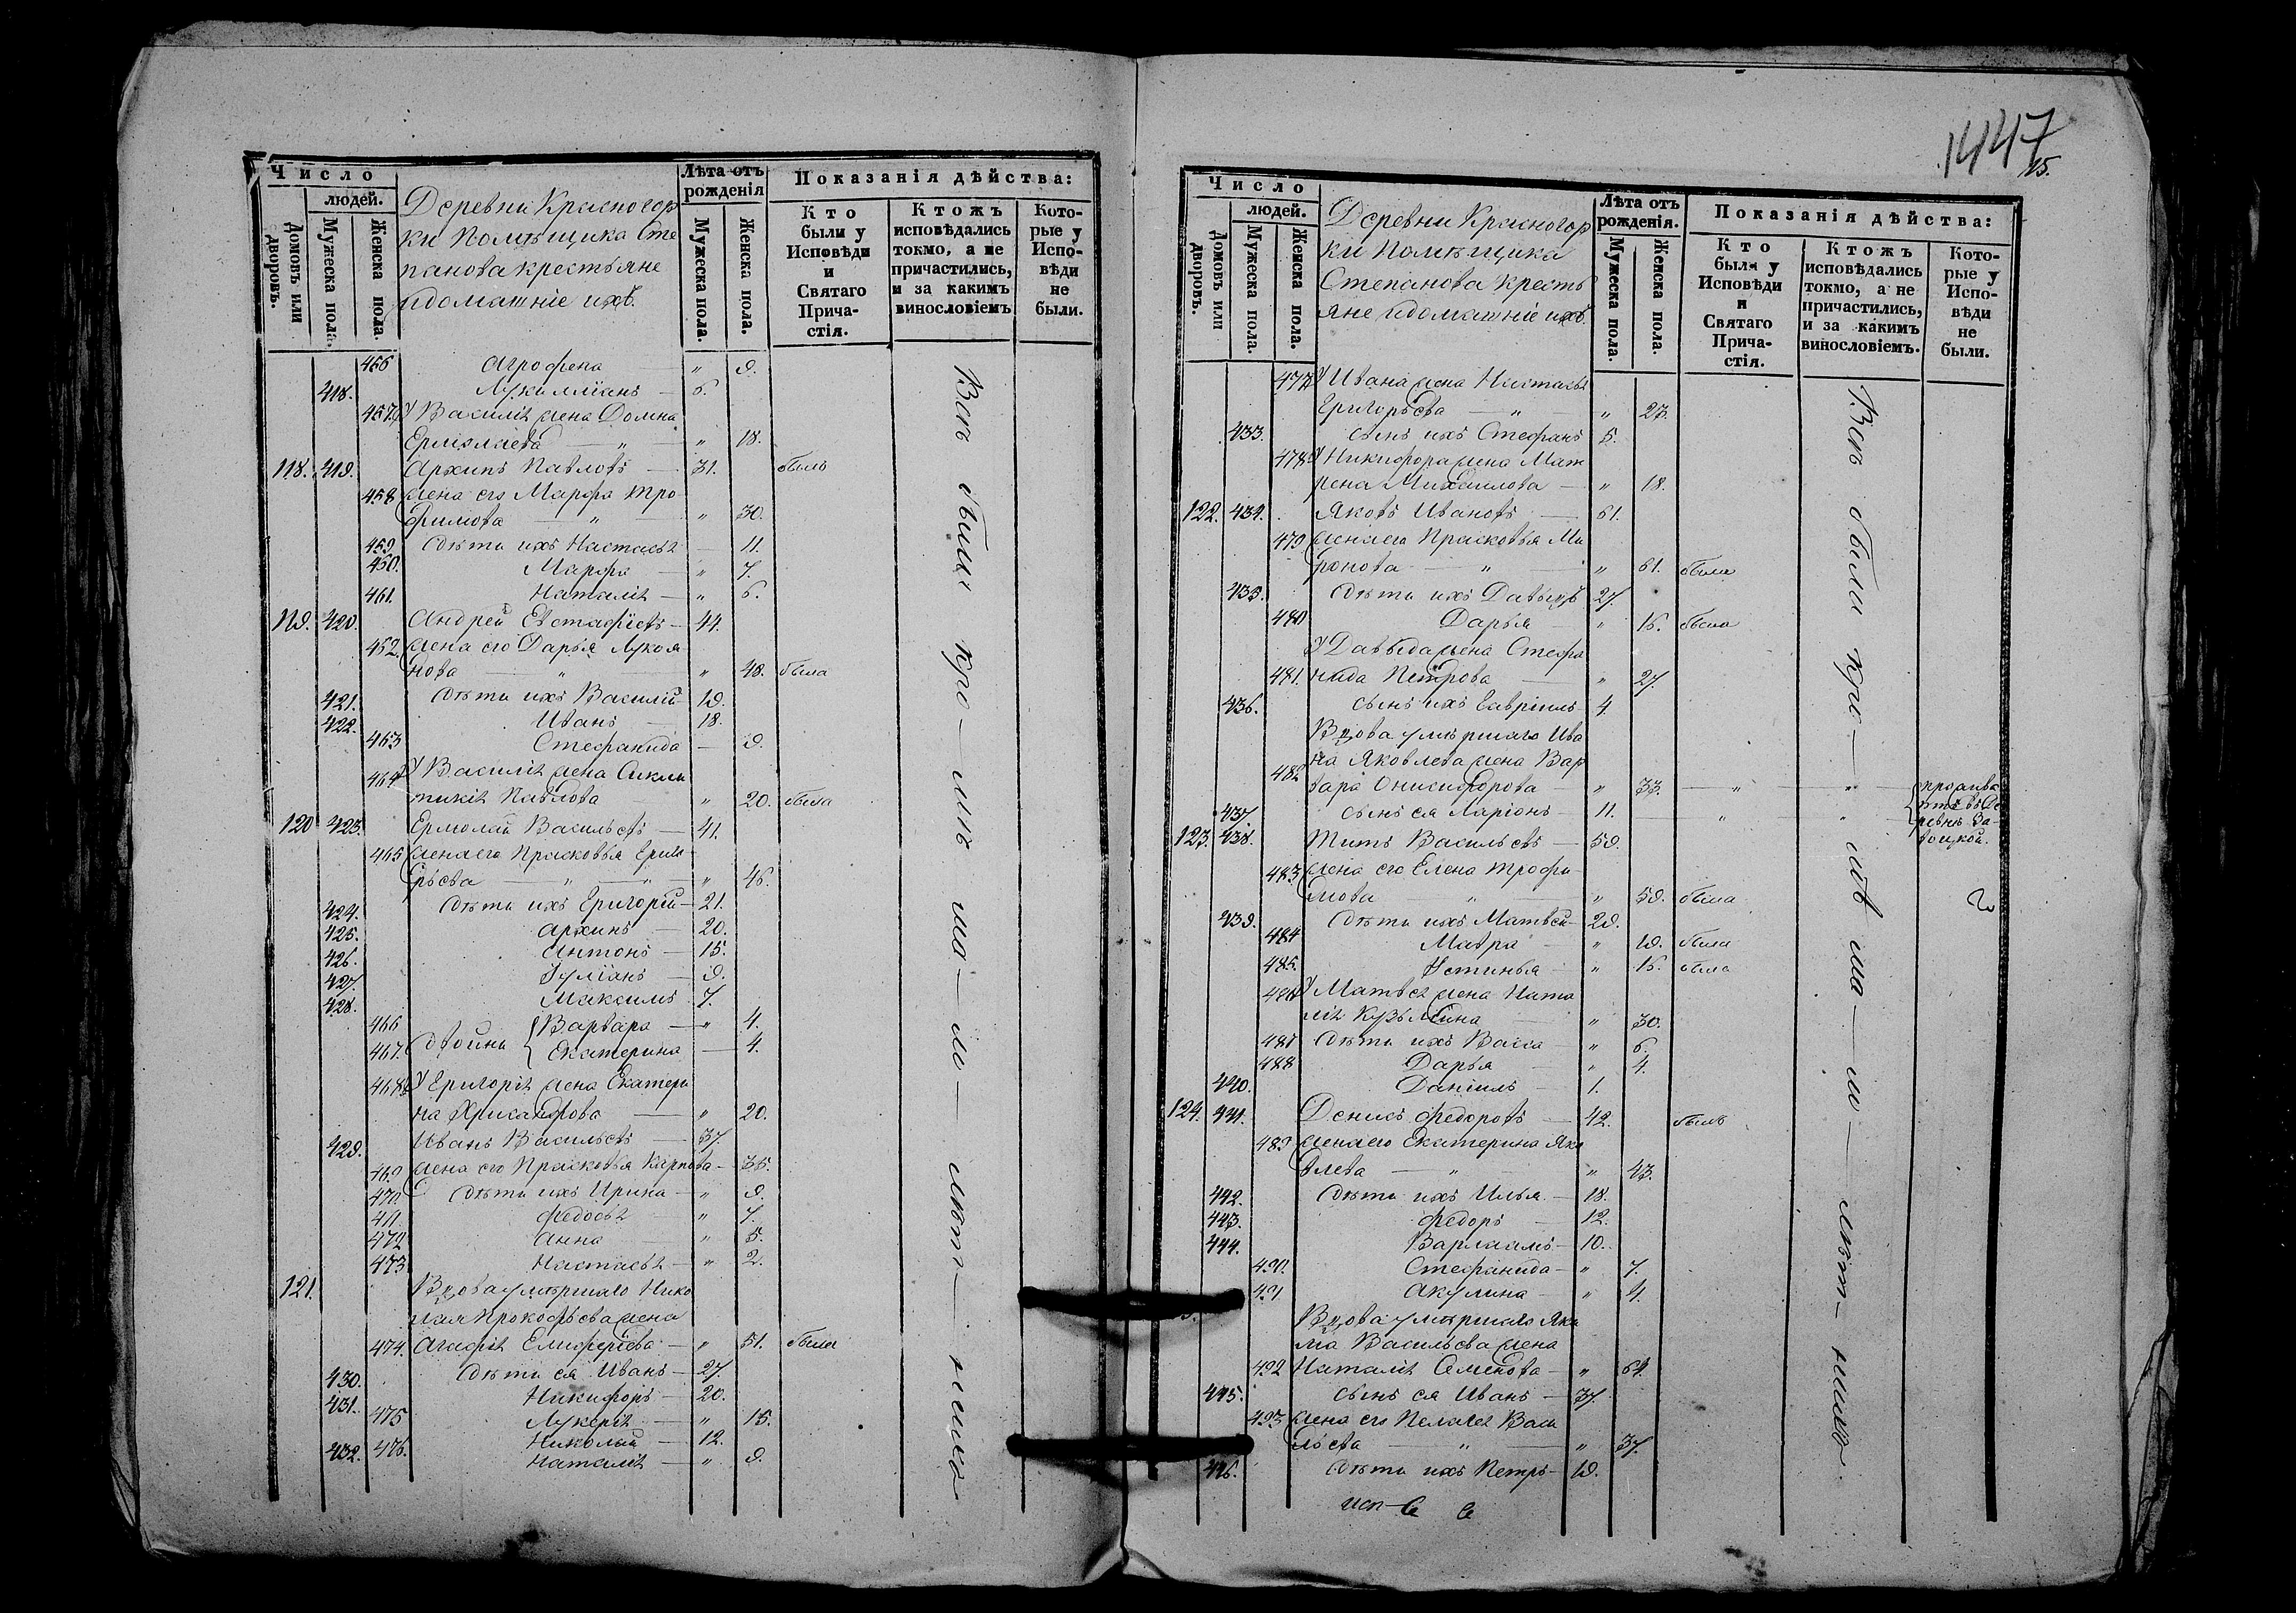 Число
людей.
Домовъ или дворовъ.
Мужеска пола.
Женска пола.
Деревни Красногор
ки Помѣщика Сте
панова крестьяне
и домашніе ихъ.
Лѣта отъ рожденія
Мужеска пола.
Женска пола.
Показанія дѣйства:
Кто были у Исповѣди и Святаго Причастія.
Ктожъ исповѣдались токмо, а не причастились, и за какимъ винословіемъ
Которые у Исповѣди не были.
456 Агрофена — „ 9.
418. Лукилліанъ — 6.
457. У Василія жена Домна
Ермолаева — „ — „ 18.
118. 419. Архипъ Павловъ — 31. былъ
458 жена его Марфа Тро
фимова — „ — „ 30.
459 Дѣти ихъ Настасья — 11.
460. Марфа — „ 7.
461. Наталія — „ 6.
119. 420. Андрей Евстафіевъ — 44.
462. жена его Дарья Лукоя
нова — „ — „ 48. была
421. Дѣти ихъ Василій — 19.
422. Иванъ — 18.
463 Стефанида — 9.
464 У Василія жена
Павлова „ 20. была
120 423. Ермолай Васильевъ — 41.
465 жена его Прасковья Григо
рьева — „ — „ — „ 46.
424. Дѣти ихъ Григорій — 21.
425. Архипъ — 20.
426. Антонъ — 15.
427. Іуліанъ — 9.
428. Максимъ 7.
466 Двойни { Варвара — „ 4.
467. Екатерина — 4.
468. У Григорія жена Екатери
на Хрисанфова — „ 20.
429. Иванъ Васильевъ — 37.
469 жена его Прасковья Карпова — 35.
470 Дѣти ихъ Ирина — „ 9.
471 Федосья — „ 7.
472 Анна — „ 5.
473 Настасья — „ 2.
121. Вдова умершаго Нико
лая Прокофьева жена
474. Агафія Елиферіева — „ 51. была
430. Дѣти ея Иванъ — 27.
431. Никифоръ — 20.
475 Лукерія — „ 15.
432. Николай — 12.
476. Наталія — „ 9.
Всѣ были кро — мѣ ма — ло — лѣт — нихъ
1447
15.
Число
людей.
Домовъ или дворовъ.
Мужеска пола.
Женска пола.
Деревни Красногор
ки Помѣщика
Степанова кресть
яне и домашніе ихъ.
Лѣта отъ рожденія.
Мужеска пола.
Женска пола.
Показанія дѣйства:
Кто были у Исповѣди и Святаго Причастія.
Ктожъ исповѣдались токмо, а не причастились, и за какимъ винословіемъ.
Которые у Исповѣди не были.
477 У Ивана жена Настасья
Григорьева — „ „ 27.
433. сынъ ихъ Стефанъ 5.
478 У Никифора жена Мат
рена Михайлова — „ 18.
122. 434. Яковъ Ивановъ — 61.
479 жена его Прасковья Ми
ронова — „ — „ 61. была
435. Дѣти ихъ Давыдъ 27.
480 Дарья — „ 16. была
У Давыда жена Стефа
481. нида Петрова — „ 27.
436. сынъ ихъ Гавріилъ 4.
Вдова умершаго Ива
на Яковлева жена Вар
482 вара Онисифорова — „ 33. — „ — „ — прожива
437. сынъ ея Ларіонъ — 11. — „ — „ — етъ въ Де
ревнѣ За-
123. 438. Титъ Васильевъ — 59.
483 жена его Елена Трофи
мова — „ — „ 59. была
439. Дѣти ихъ Матвей — 29.
484 Мавра — „ 19. была
485. Устинья — „ 16. была
486 У Матвея жена Ната
лія Кузьмина — „ 30.
487 Дѣти ихъ Васса — „ 6.
488 Дарья — „ 4.
440. Даніилъ — 1.
124. 441. Денисъ Федоровъ — 42. былъ
489 жена его Екатерина Яко
влева — „ — „ 43.
442. Дѣти ихъ Илья — 18.
443. Федоръ — 12.
444. Варлаамъ — 10.
490. Стефанида — „ 7.
491 Акулина — „ 4.
Вдова умершаго Яки
ма Васильева жена
492 Наталія Семенова — „ 64.
445. сынъ ея Иванъ — 37.
493 жена его Пелагея Васи
льева — „ — „ 37.
446. Дѣти ихъ Петръ — 19.
Всѣ были кро — мѣ ма — ло — лѣт — нихъ.